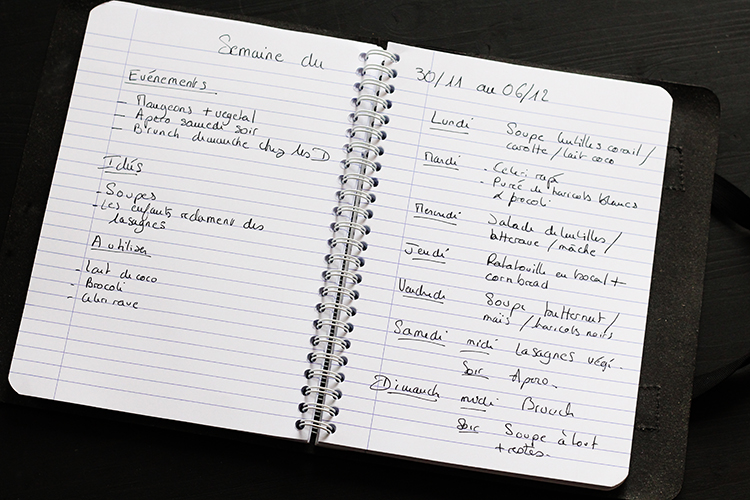 Semaine du
Evénements
- Mangeons + végétal
- Apéro samedi soir
- Brunch dimanche chez les D
Idées
- Soupes
- Les enfants réclament des
lasagnes
A utiliser
- Lait de coco
- Brocoli
- Céleri rave
30/11 au 06/12
Lundi Soupe lentilles corail/
carotte/lait coco
Mardi - Celeri rapé
- Purée de haricots blancs
& brocoli
Mercredi Salade de lentilles/
betterave/mâche
Jeudi Ratatouille en bocal +
cornbread
Vendredi Soupe butternut/
maïs/haricots noirs
Samedi midi Lasagnes végé.
soir Apero.
Dimanche midi Brunch
soir Soupe à tout
+ restes.